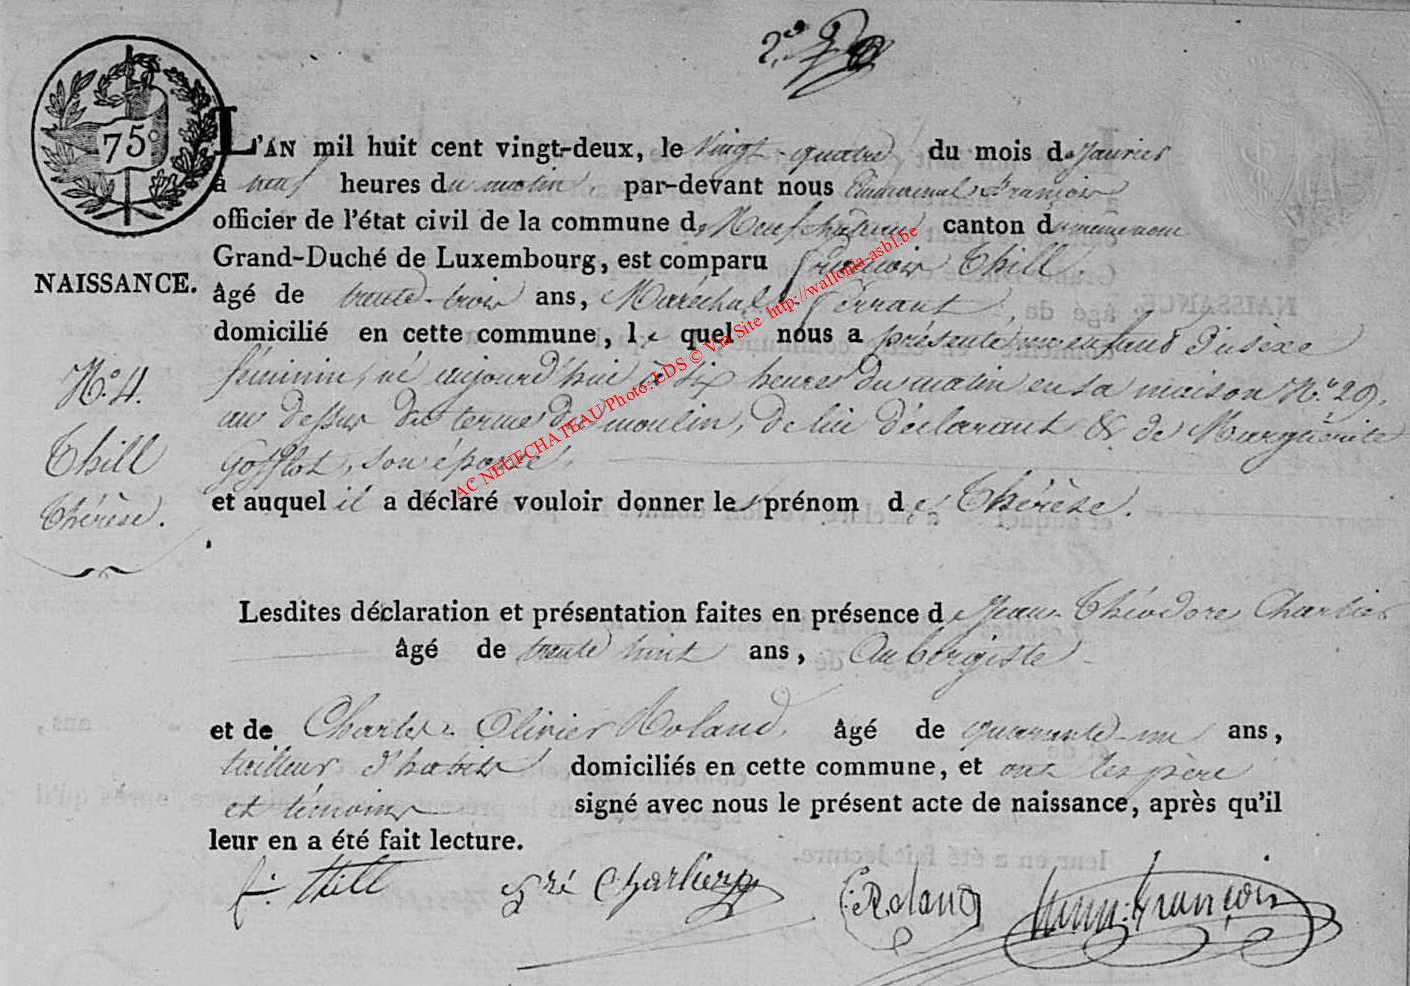 75c
L'AN mil huit cent vingt-deux, le Vingt-quatre du mois de Janvier
à neuf heures du matin, par-devant nous Emmanuel François
officier de l'état civil de la commune de Neufchateau canton du même nom
Grand-Duché de Luxembourg, est comparu François Thill,
NAISSANCE.
âgé de trente-trois ans, Maréchal ferrant,
domicilié en cette commune, le quel nous a présenté un enfant du sexe
féminin, né aujourd'hui à six heures du matin en sa maison N.o 29,
au dessus du terme du moulin, de lui déclarant & de Marguérite
Gofflot, son épouse,
N.o 4.
Thill
Thérèse.
et auquel il a déclaré vouloir donner les prénom de Thérèse.
Lesdites déclaration et présentation faites en présence de Jean-Théodore Charlier
âgé de trente huit ans, Aubergiste
et de Charles-Olivier Roland, âgé de quarante-un ans,
tailleur d'habits domiciliés en cette commune, et ont les père
et témoins signé avec nous le présent acte de naissance, après qu'il
leur en a été fait lecture.
f. thill Charlier C. Roland Emm. François
AC NEUFCHATEAU Photo: LDS © Via Site http://wallonia-asbl.be